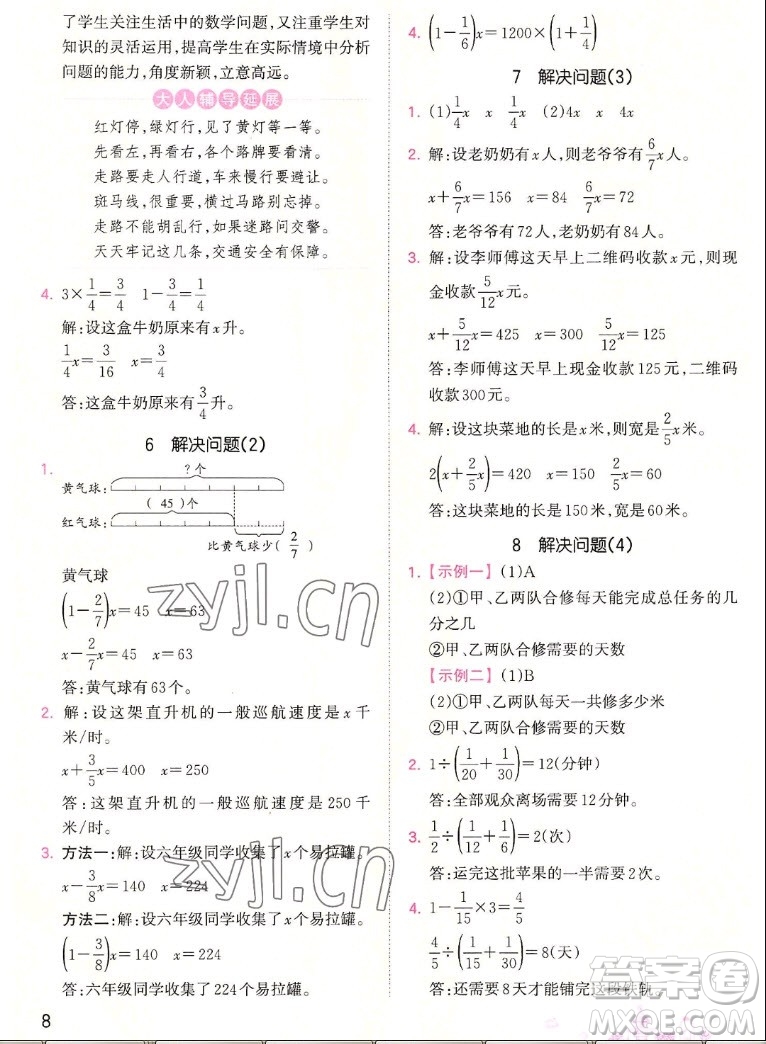 了学生关注生活中的数学问题,又注重学生对
知识的灵活运用,提高学生在实际情境中分析
问题的能力,角度新颖,立意高远。
大人辅导延展
红灯停,绿灯行,见了黄灯等一等。
先看左,再看右,各个路牌要看清。
走路要走人行道,车来慢行要避让。
斑马线,很重要,横过马路别忘掉。
走路不能胡乱行,如果迷路问交警。
天天牢记这几条,交通安全有保障。
4. 3×1/4=3/4 1-3/4=1/4
解:设这盒牛奶原来有x升。
1/4x=3/16 x=3/4
答:这盒牛奶原来有3/4升。
6 解决问题(2)
1.
?个
黄气球:
(45)个
红气球:
比黄气球少(2/7)
黄气球
(1-2/7)x=45 x=63
x-2/7x=45 x=63
答:黄气球有63个。
2. 解:设这架直升机的一般巡航速度是x千
米/时。
x+3/5x=400 x=250
答:这架直升机的一般巡航速度是250千
米/时。
3. 方法一:解:设六年级同学收集了x个易拉罐。
x-3/8x=140 x=224
方法二:解:设六年级同学收集了x个易拉罐。
(1-3/8)x=140 x=224
答:六年级同学收集了224个易拉罐。
8
4. (1-1/6)x=1200×(1+1/4)
7 解决问题(3)
1. (1)1/4x x 1/4x (2)4x x 4x
2. 解:设老奶奶有x人,则老爷爷有6/7x人。
x+6/7x=156 x=84 6/7x=72
答:老爷爷有72人,老奶奶有84人。
3. 解:设李师傅这天早上二维码收款x元,则
现金收款5/12x元。
x+5/12x=425 x=300 5/12x=125
答:李师傅这天早上现金收款125元,二维码
收款300元。
4. 解:设这块菜地的长是x米,则宽是2/5x米。
2(x+2/5x)=420 x=150 2/5x=60
答:这块菜地的长是150米,宽是60米。
8 解决问题(4)
1. 【示例一】(1)A
(2)①甲、乙两队合修每天能完成总任务的几
分之几
②甲、乙两队合修需要的天数
【示例二】(1)B
(2)①甲、乙两队每天一共修多少米
②甲、乙两队合修需要的天数
2. 1÷(1/20+1/30)=12(分钟)
答:全部观众离场需要12分钟。
3. 1/2÷(1/12+1/6)=2(次)
答:运完这批苹果的一半需要2次。
4. 1-1/15×3=4/5
4/5÷(1/15+1/30)=8(天)
答:还需要8天才能铺完这段铁轨。
zyjl.cn
zyjl.cn
答案圈
MXQE.COM